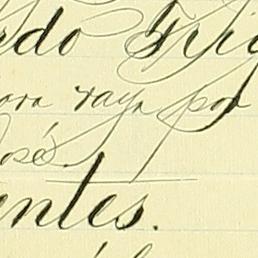 rdo Trig
ora raya por
José
entes.